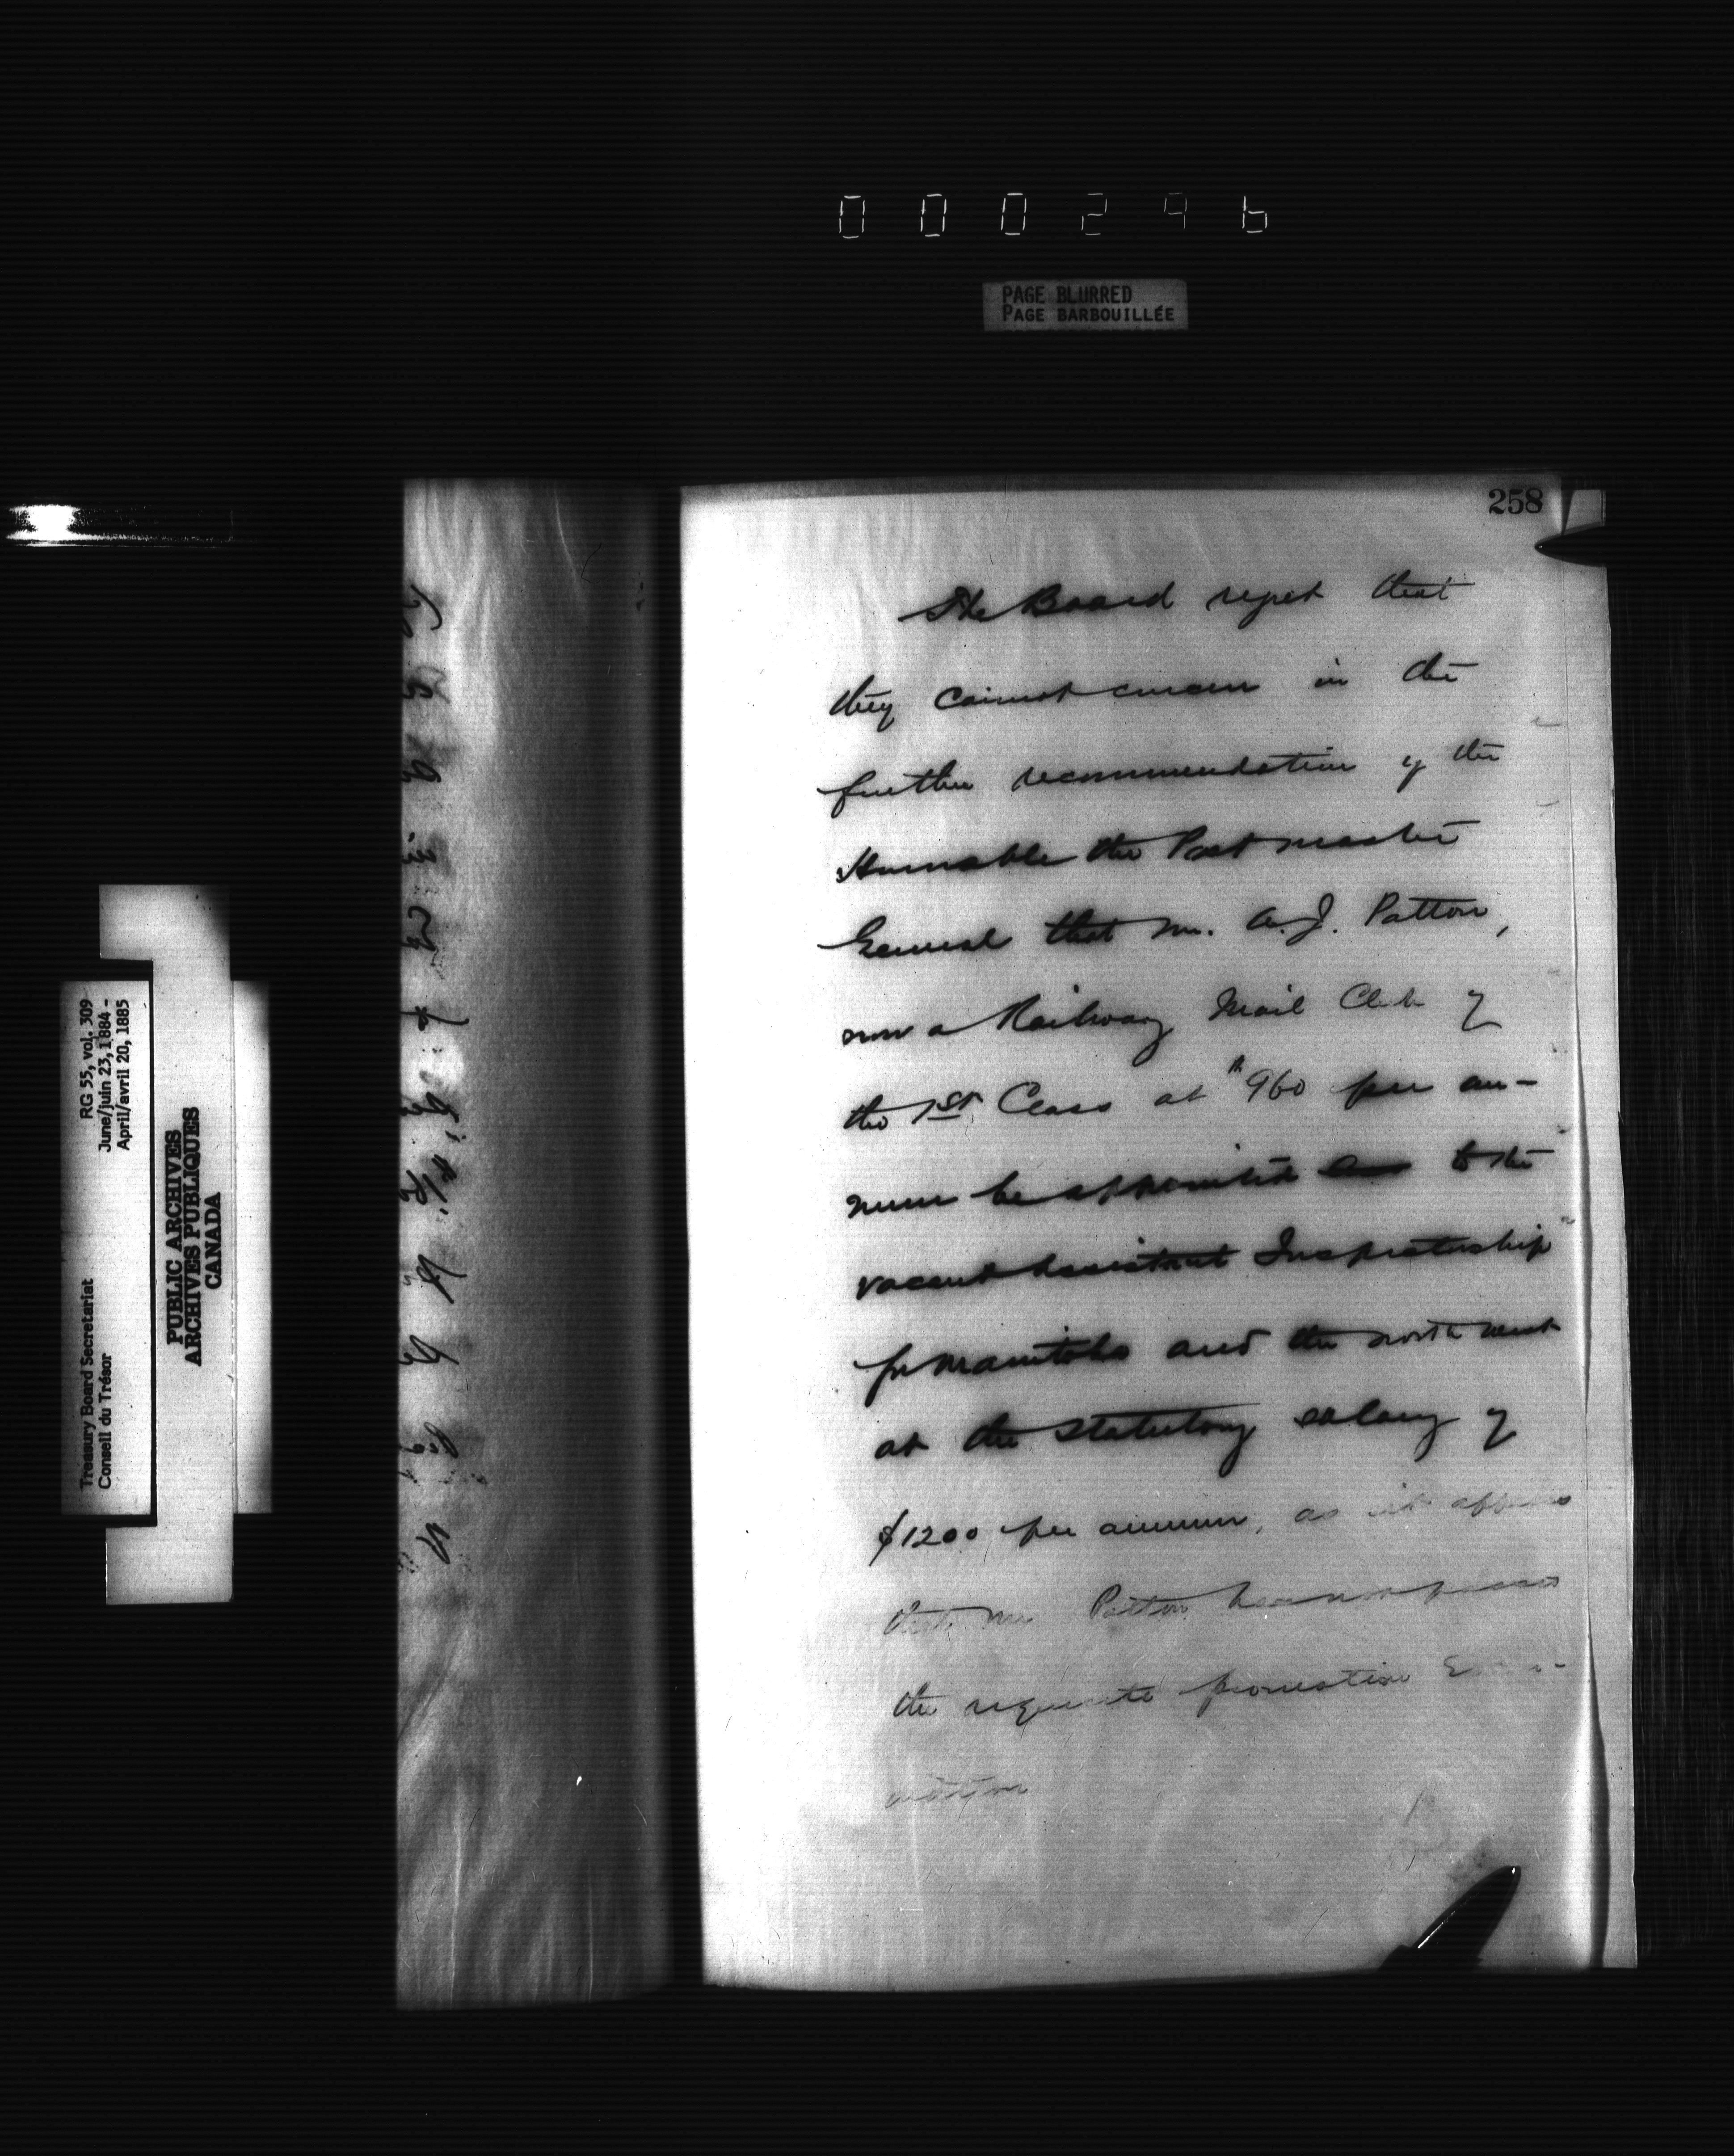 000296
PAGE BLURRED
PAGE BARBOUILLÉE
258
The Board regret that
they cannot concur in the
further recommendation of the
Honorable the Postmaster
General that Mr. A. J. Patton,
now a Railway Mail Clerk of
the 1st Class at $960 per an-
num be appointed to the
vacant Assistant Inspectorship
for Manitoba and the North West
at the statutory salary of
$1200 per annum, as it appears
that Mr Patton has not passed
the requisite promotion
nation
RG 55, vol. 309
June/juin 23, 1884 -
April/avril 20, 1885
Treasury Board Secretariat
Conseil du Trésor
PUBLIC ARCHIVES
ARCHIVES PUBLIQUES
CANADA